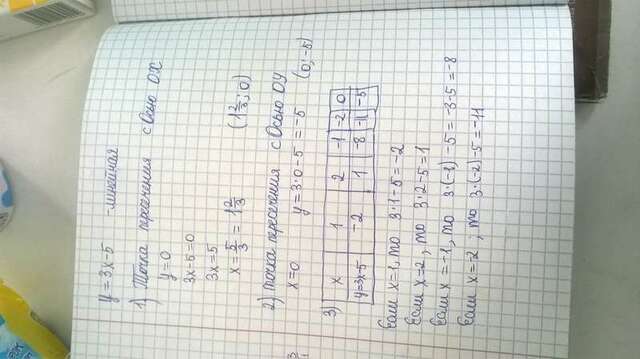 y=3x-5 -линейная
1) Точка пересечения с Осью OX
y=0
3x-5=0
3x=5
x=5/3 = 1 2/3 (1 2/3; 0)
2) точка пересечения с Осью OY
x=0 y=3·0-5=-5 (0; -5)
3) x 1 2 -1 -2 0
y=3x-5 -2 1 -8 -11 -5
Если x=1, то 3·1-5=-2
Если x=2, то 3·2-5=1
Если x=-1, то 3·(-1)-5=-3-5=-8
Если x=-2; то 3·(-2)-5=-11